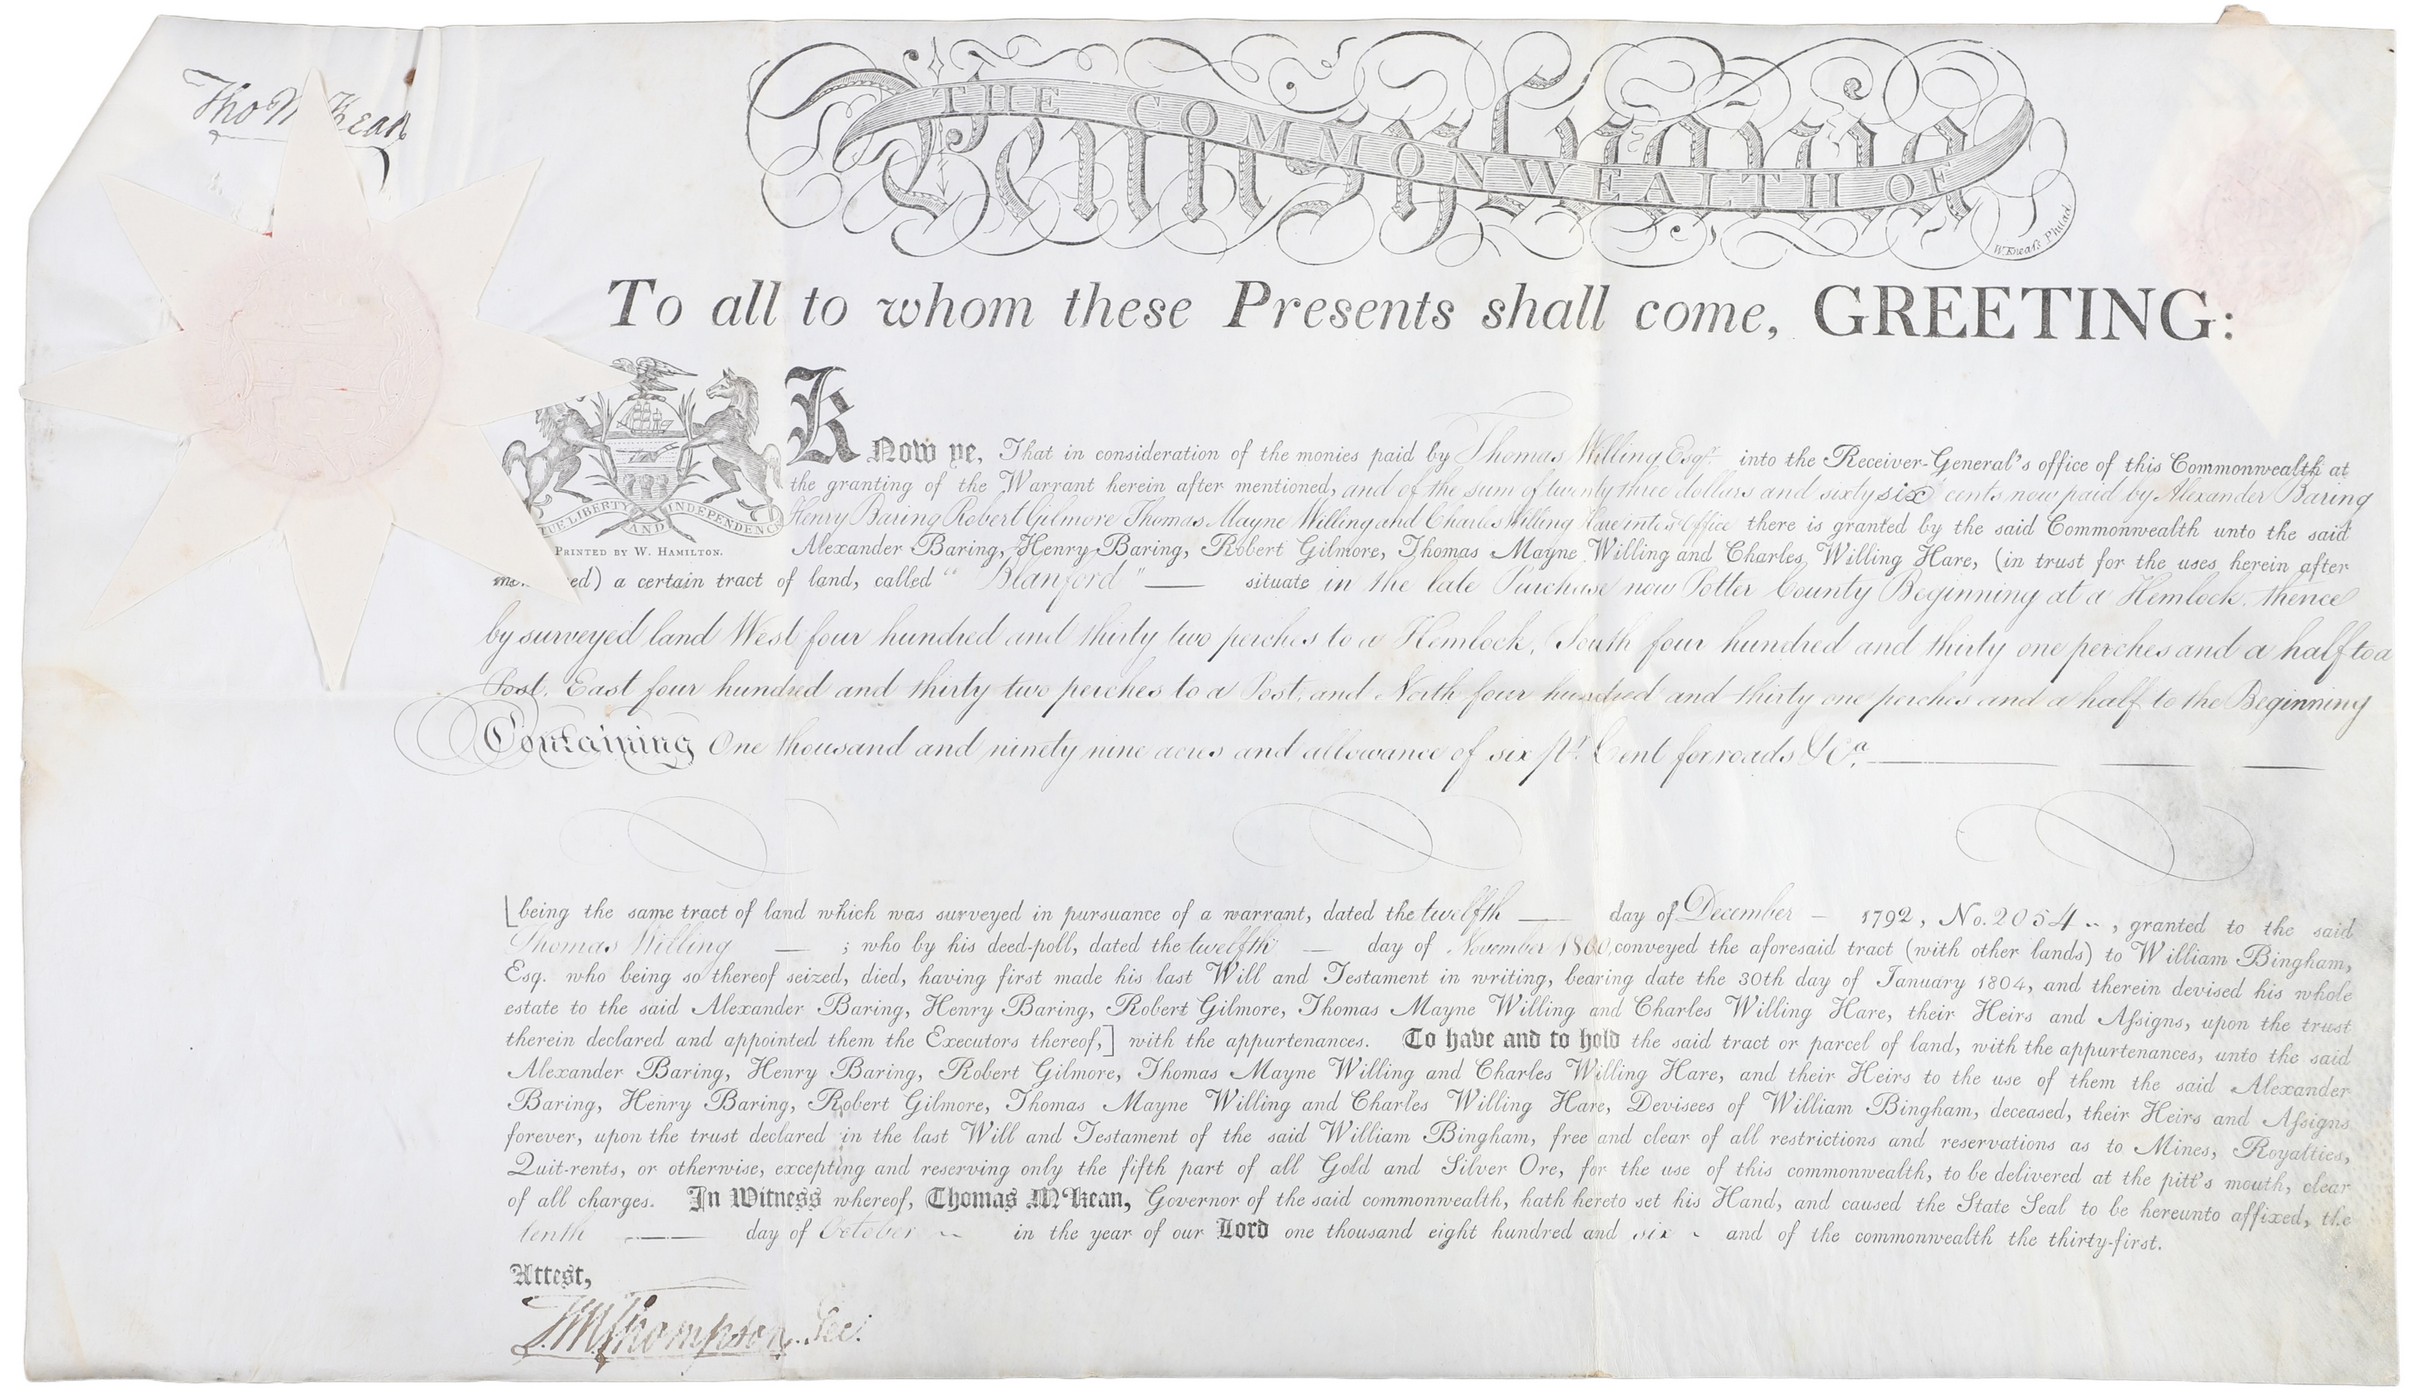 Tho M:Kean
THE COMMONWEALTH OF
Pennsylvania
W. Kneaſs Philad.
To all to whom these Presents shall come, GREETING:
Know ye, That in consideration of the monies paid by Thomas Willing Esqr. into the Receiver-General's office of this Commonwealth at
the granting of the Warrant herein after mentioned, and of the sum of twenty three dollars and sixty six cents now paid by Alexander Baring
Henry Baring Robert Gilmore Thomas Mayne Willing and Charles Willing Hare into sd Office there is granted by the said Commonwealth unto the said
Alexander Baring, Henry Baring, Robert Gilmore, Thomas Mayne Willing and Charles Willing Hare, (in trust for the uses herein after
ed) a certain tract of land, called "Blanford" situate in the late Purchase now Potter County Beginning at a Hemlock, thence
UE LIBERTY AND INDEPENDENCE
PRINTED BY W. HAMILTON.
by surveyed land West four hundred and thirty two perches to a Hemlock, South four hundred and thirty one perches and a half to a
Post, East four hundred and thirty two perches to a Post, and North four hundred and thirty one perches and a half to the Beginning
Containing One thousand and ninety nine acres and allowance of six pr. Cent for roads &ca.
[being the same tract of land which was surveyed in pursuance of a warrant, dated the twelfth day of December 1792, No. 2054, granted to the said
Thomas Willing ; who by his deed-poll, dated the twelfth day of November 1800, conveyed the aforesaid tract (with other lands) to William Bingham,
Esq. who being so thereof seized, died, having first made his last Will and Testament in writing, bearing date the 30th day of January 1804, and therein devised his whole
estate to the said Alexander Baring, Henry Baring, Robert Gilmore, Thomas Mayne Willing and Charles Willing Hare, their Heirs and Aſsigns, upon the trust
therein declared and appointed them the Executors thereof,] with the appurtenances. To have and to hold the said tract or parcel of land, with the appurtenances, unto the said
Alexander Baring, Henry Baring, Robert Gilmore, Thomas Mayne Willing and Charles Willing Hare, and their Heirs to the use of them the said Alexander
Baring, Henry Baring, Robert Gilmore, Thomas Mayne Willing and Charles Willing Hare, Devisees of William Bingham, deceased, their Heirs and Aſsigns
forever, upon the trust declared in the last Will and Testament of the said William Bingham, free and clear of all restrictions and reservations as to Mines, Royalties,
Quit-rents, or otherwise, excepting and reserving only the fifth part of all Gold and Silver Ore, for the use of this commonwealth, to be delivered at the pitt's mouth, clear
of all charges. In Witness whereof, Thomas M'Kean, Governor of the said commonwealth, hath hereto set his Hand, and caused the State Seal to be hereunto affixed, the
tenth day of October in the year of our Lord one thousand eight hundred and six and of the commonwealth the thirty-first.
Attest,
T.M. Thompson. Sec: